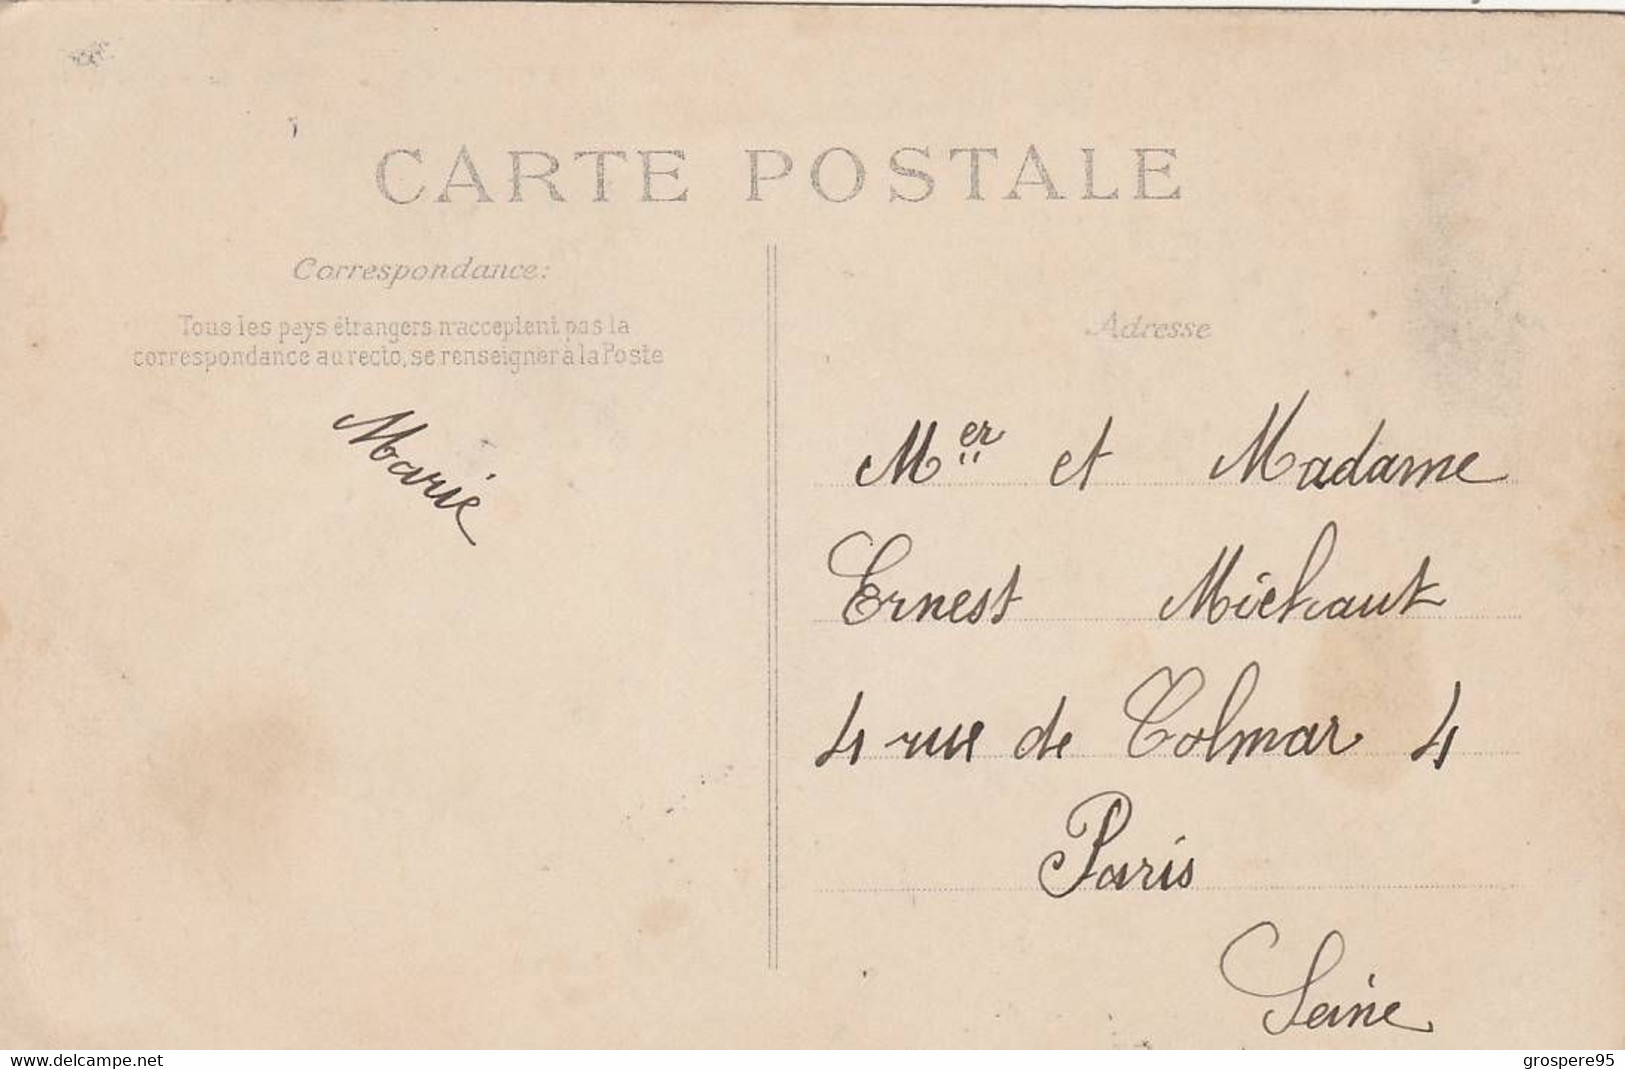 CARTE POSTALE
Correspondance:
Tous les pays étrangers n'acceptent pas la
correspondance au recto, se renseigner à la Poste
Marie
Adresse
Mer et Madame
Ernest Michaut
4 rue de Colmar 4
Paris
Seine
www.delcampe.net
grospere95